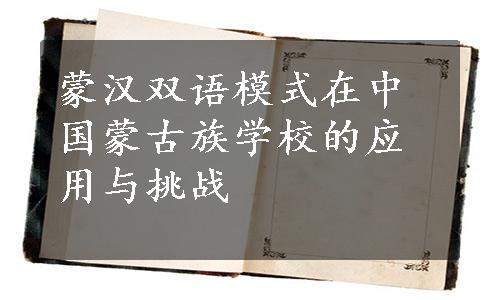 蒙汉双语模式在中
国蒙古族学校的应
用与挑战